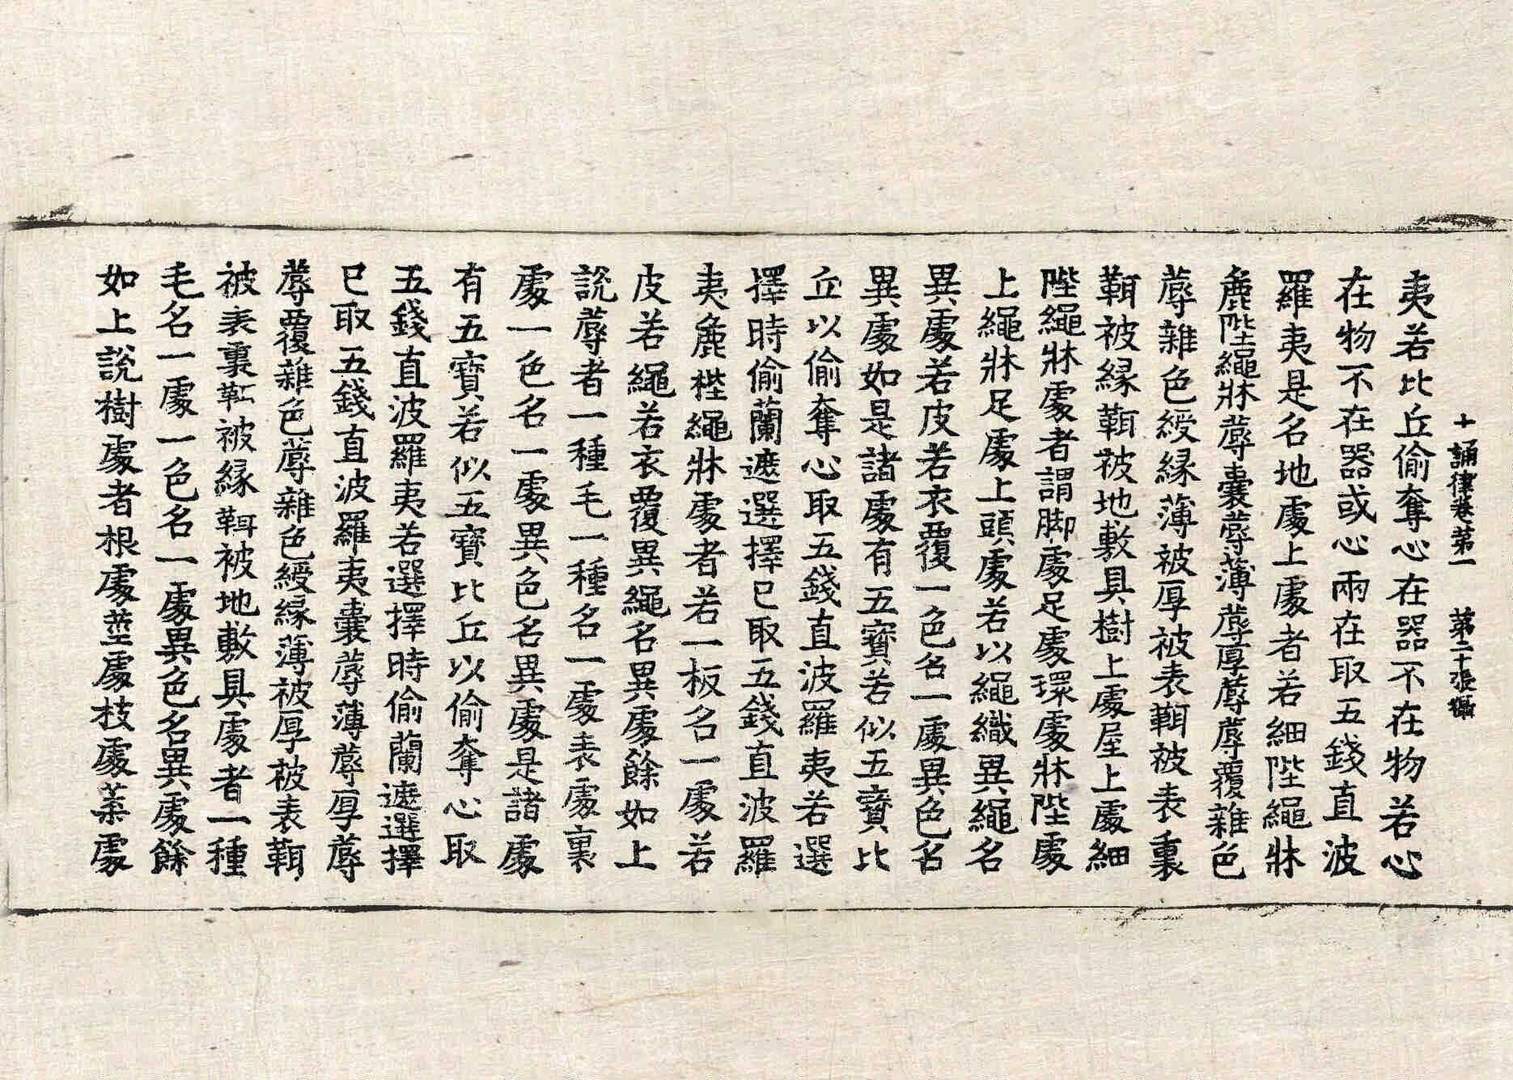 十誦律卷第一　第二十張　攝
夷若比丘偷奪心在器不在物若心
在物不在器或心兩在取五錢直波
羅夷是名地處上處者若細陛繩牀
麁陛繩牀蓐囊蓐薄蓐厚蓐蓐覆雜色
蓐雜色綬緣薄被厚被表𩋾被表裏
𩋾被緣𩋾被地敷具樹上處屋上處細
陛繩牀處者謂脚處足處環處牀陛處
上繩牀足處上頭處若以繩織異繩名
異處若皮若衣覆一色名一處異色名
異處如是諸處有五寶若似五寶比
丘以偷奪心取五錢直波羅夷若選
擇時偷蘭遮選擇已取五錢直波羅
夷麁梐繩牀處者若一板名一處若
皮若繩若衣覆異繩名異處餘如上
說蓐者一種毛一種名一處表處裏
處一色名一處異色名異處是諸處
有五寶若似五寶比丘以偷奪心取
五錢直波羅夷若選擇時偷蘭遮選擇
已取五錢直波羅夷囊蓐薄蓐厚蓐
蓐覆雜色蓐雜色綬緣薄被厚被表𩋾
被表裏𩋾被緣𩋾被地敷具處者一種
毛名一處一色名一處異色名異處餘
如上說樹處者根處莖處枝處葉處